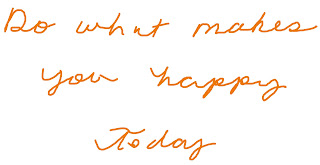 Do what makes
you happy
Today